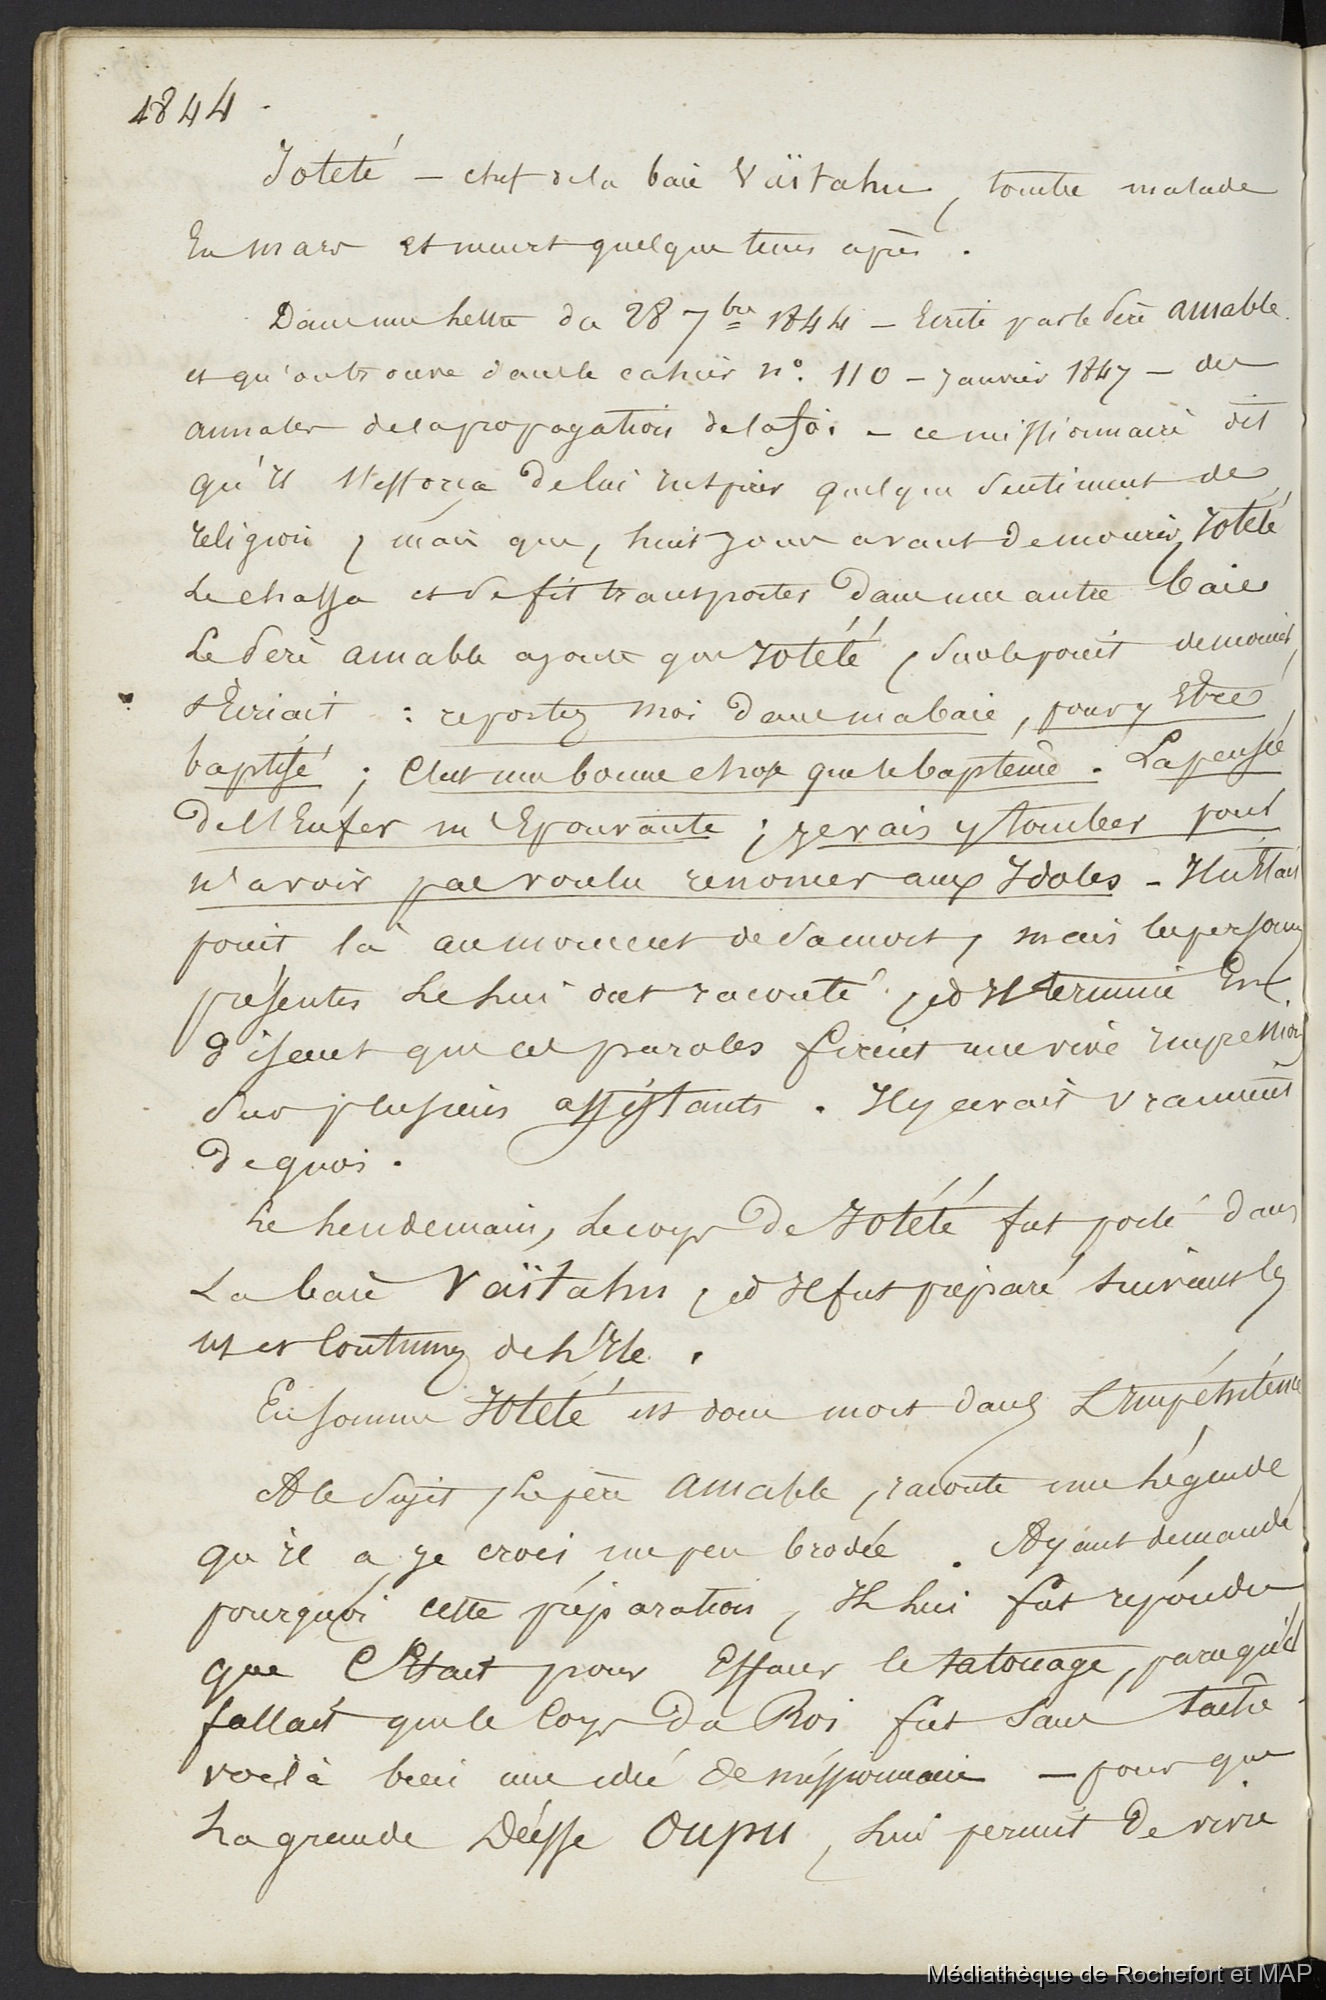 1844.
Iotété — chef de la baie Vaïtahu, tombe malade
En mars et meurt quelque tems après.
Dans une lettre du 28 7bre 1844 — Ecrite par le Père Amable.
et qu'on trouve dans le cahier n°. 110 — Janvier 1847 — des
annales de la propagation de la foi. — ce missionnaire dit
qu'il s'efforça de lui inspirer quelque sentiment de
religion, mais que, huit jours avant de mourir, Iotété
Le chassa et se fit transporter dans une autre baie
Le Père Amable ajoute que Iotété, sur le point de mourir,
s'Ecriait : reportez moi dans ma baie, pour y Etre
baptisé ; C'est une bonne chose que le baptême. La pensée
de l'Enfer m'Epouvante ; je vais y tomber pour
n'avoir pas voulu renoncer aux Idoles — Il n'Etait
point là au moment de sa mort, mais les personnes
présentes Le lui ont raconté, et Il termine En
disant que ces paroles firent une vive impression
Sur plusieurs assistants. Il y avait vraiment
de quoi.
Le Lendemain, Le corps de Iotété fut porté dans
La baie Vaïtahu, et Il fut préparé suivant les
us et Coutumes de l'Ile.
En somme Iotété est donc mort dans L'Impénitence
A Ce Sujet, Le père Amable, raconte une Légende
qu'il a je crois un peu brodée. Ayant demandé
pourquoi cette préparation, Il lui fut répondu
que C'Etait pour Effacer le tatouage, parcequ'il
fallait que le Corps du Roi fut Sans tache
voilà bien une idée de missionnaire — pour que
La grande Déesse Oupu, lui permit de vivre
Médiathèque de Rochefort et MAP